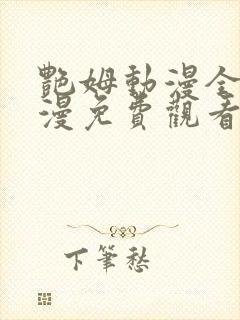 艷姆動漫全
漫免費觀看
下筆愁